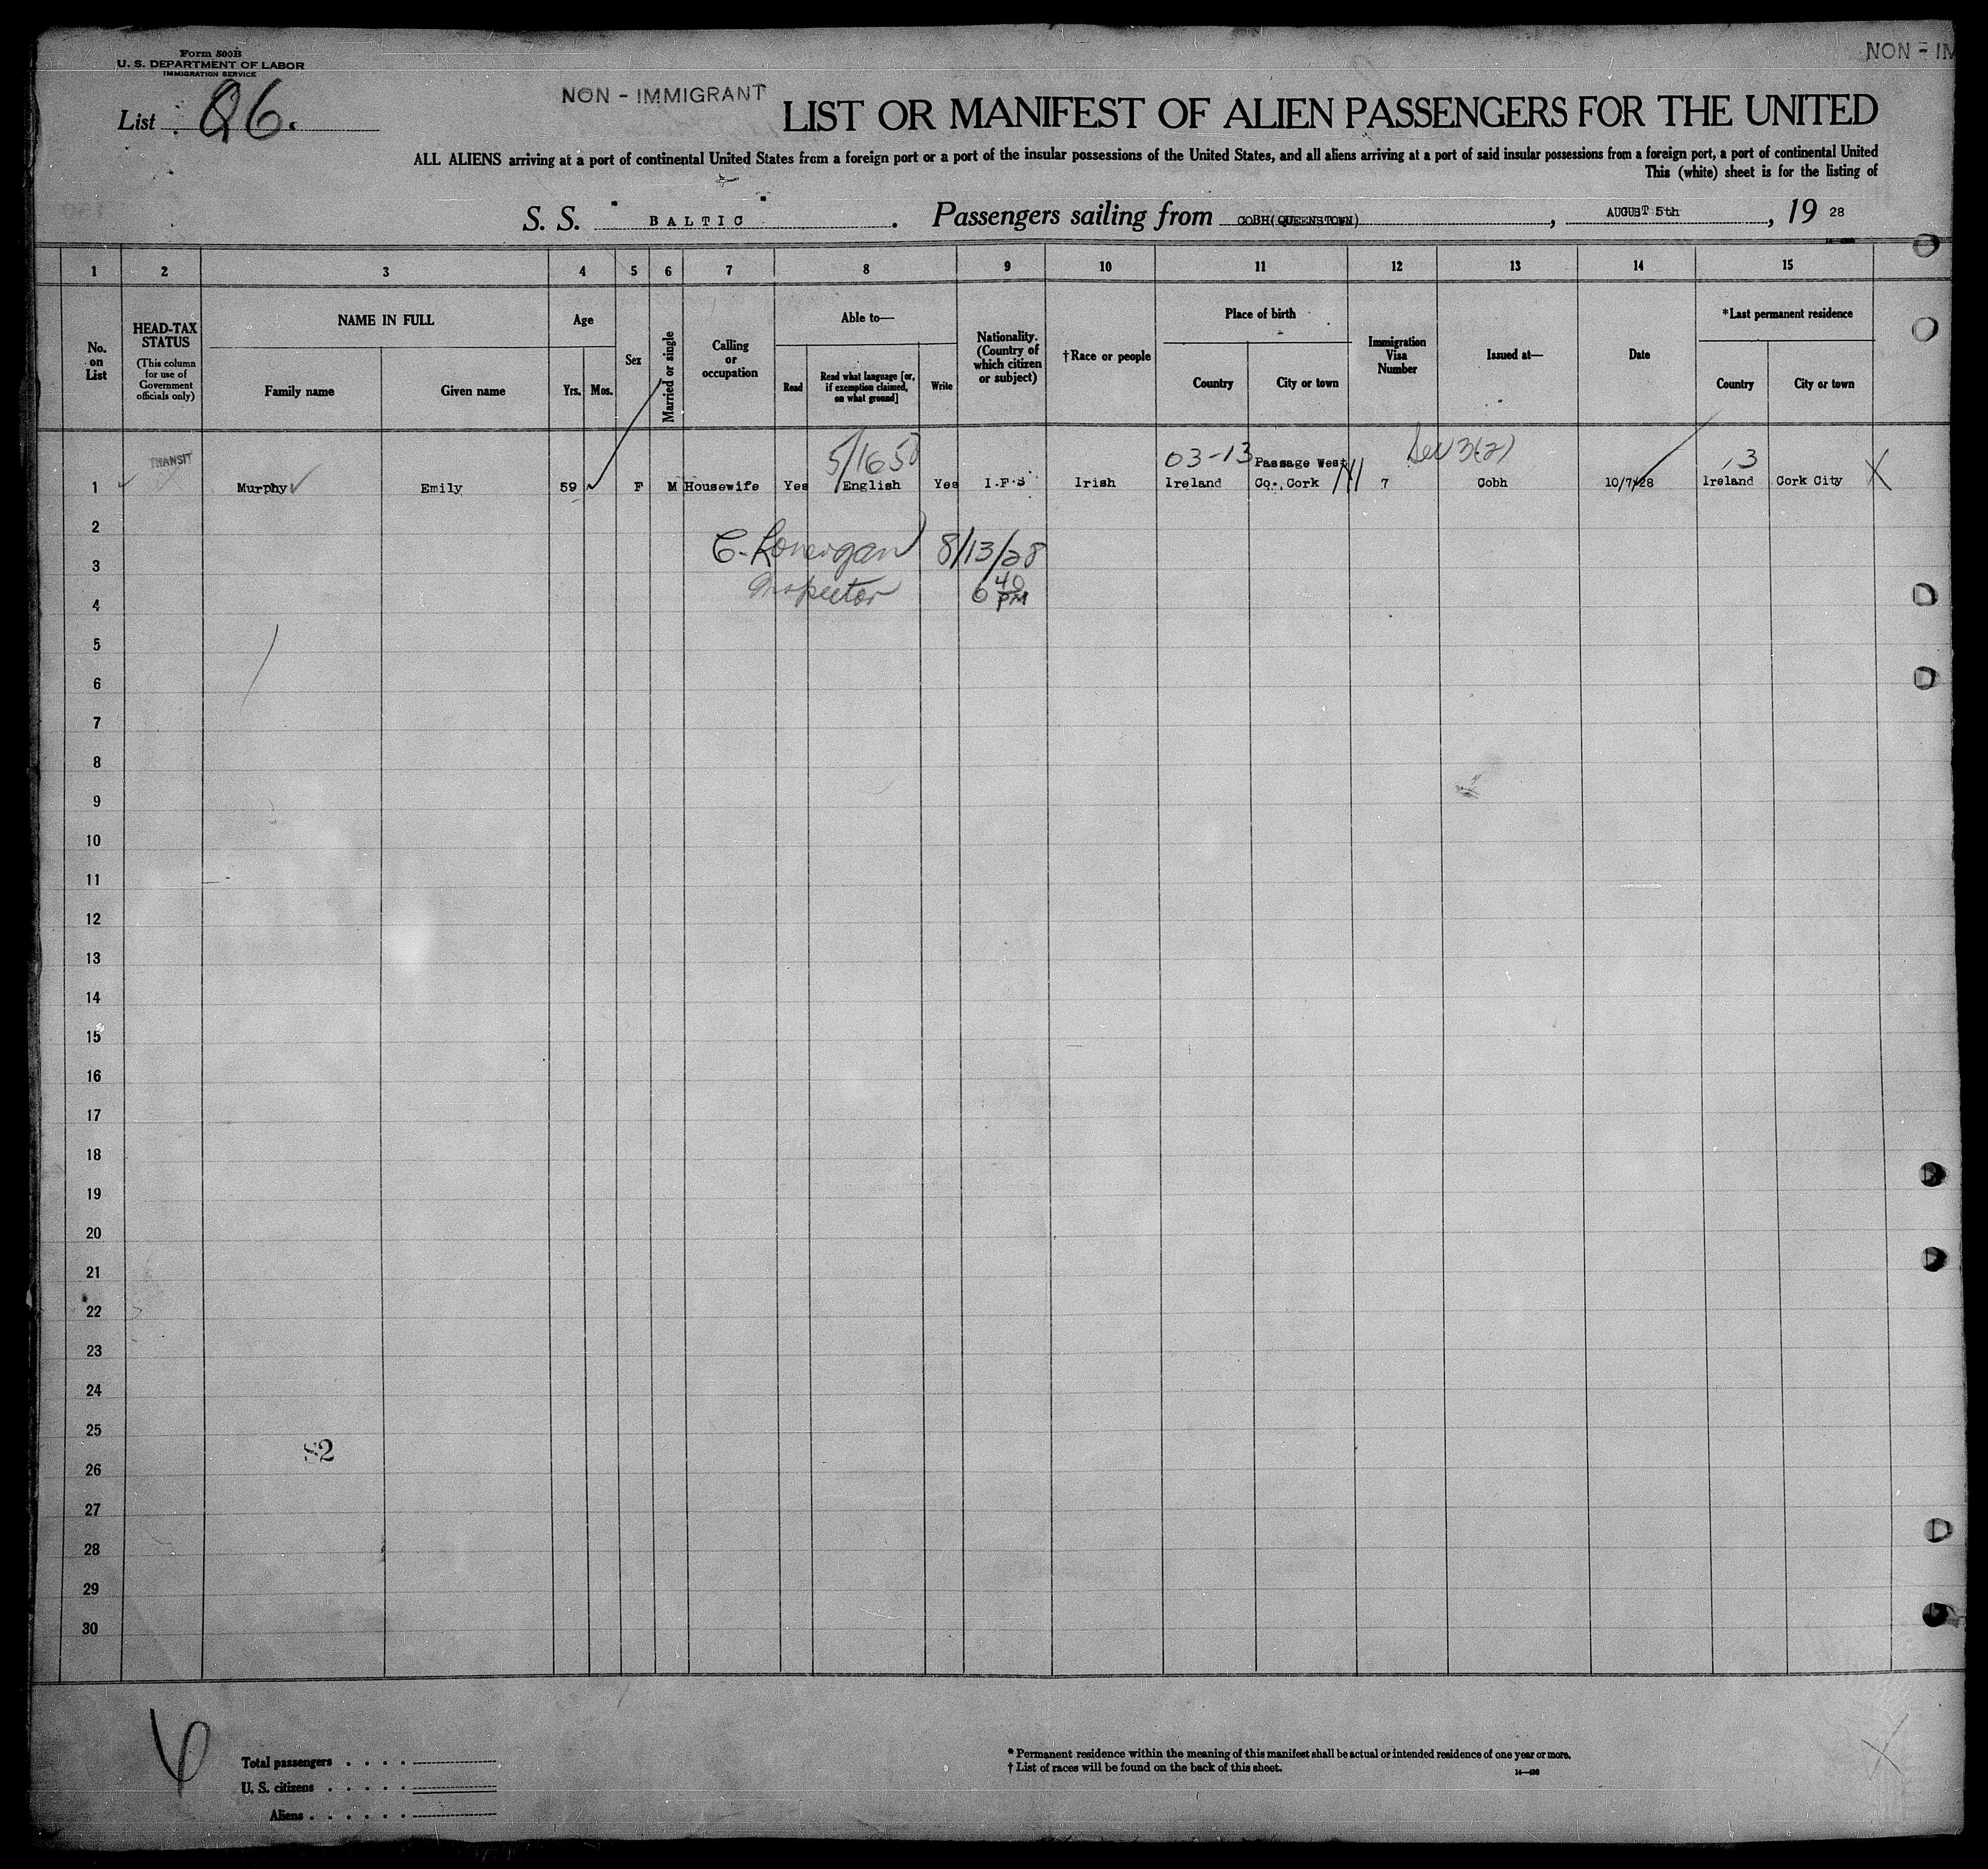 Form 500B
U. S. DEPARTMENT OF LABOR
IMMIGRATION SERVICE
NON - IM
List 26.
NON - IMMIGRANT
LIST OR MANIFEST OF ALIEN PASSENGERS FOR THE UNITED
ALL ALIENS arriving at a port of continental United States from a foreign port or a port of the insular possessions of the United States, and all aliens arriving at a port of said insular possessions from a foreign port, a port of continental United
This (white) sheet is for the listing of
S. S. " BALTIC " . Passengers sailing from COBH(QUEENSTOWN) , AUGUST 5th , 19 28
1 2 3 4 5 6 7 8 9 10 11 12 13 14 15
No. on List
HEAD-TAX STATUS
(This column for use of Government officials only)
NAME IN FULL
Family name Given name
Age
Yrs. Mos.
Sex
Married or single
Calling or occupation
Able to—
Read
Read what language [or, if exemption claimed, on what ground]
Write
Nationality. (Country of which citizen or subject)
†Race or people
Place of birth
Country City or town
Immigration Visa Number
Issued at—
Date
*Last permanent residence
Country City or town
TRANSIT 03-13 Passage West 3(2) 3
1 Murphy Emily 59 F M Housewife Yes English Yes I.F.S Irish Ireland Co. Cork 7 Cobh 10/7/28 Ireland Cork City X
2
C. Lonergan 8/13/28
3
Inspector 6 40 PM
4
5
6
7
8
9
10
11
12
13
14
15
16
17
18
19
20
21
22
23
24
25
82
26
27
28
29
30
Total passengers . . . .
U. S. citizens . . . . .
Aliens . . . . . .
* Permanent residence within the meaning of this manifest shall be actual or intended residence of one year or more.
† List of races will be found on the back of this sheet.